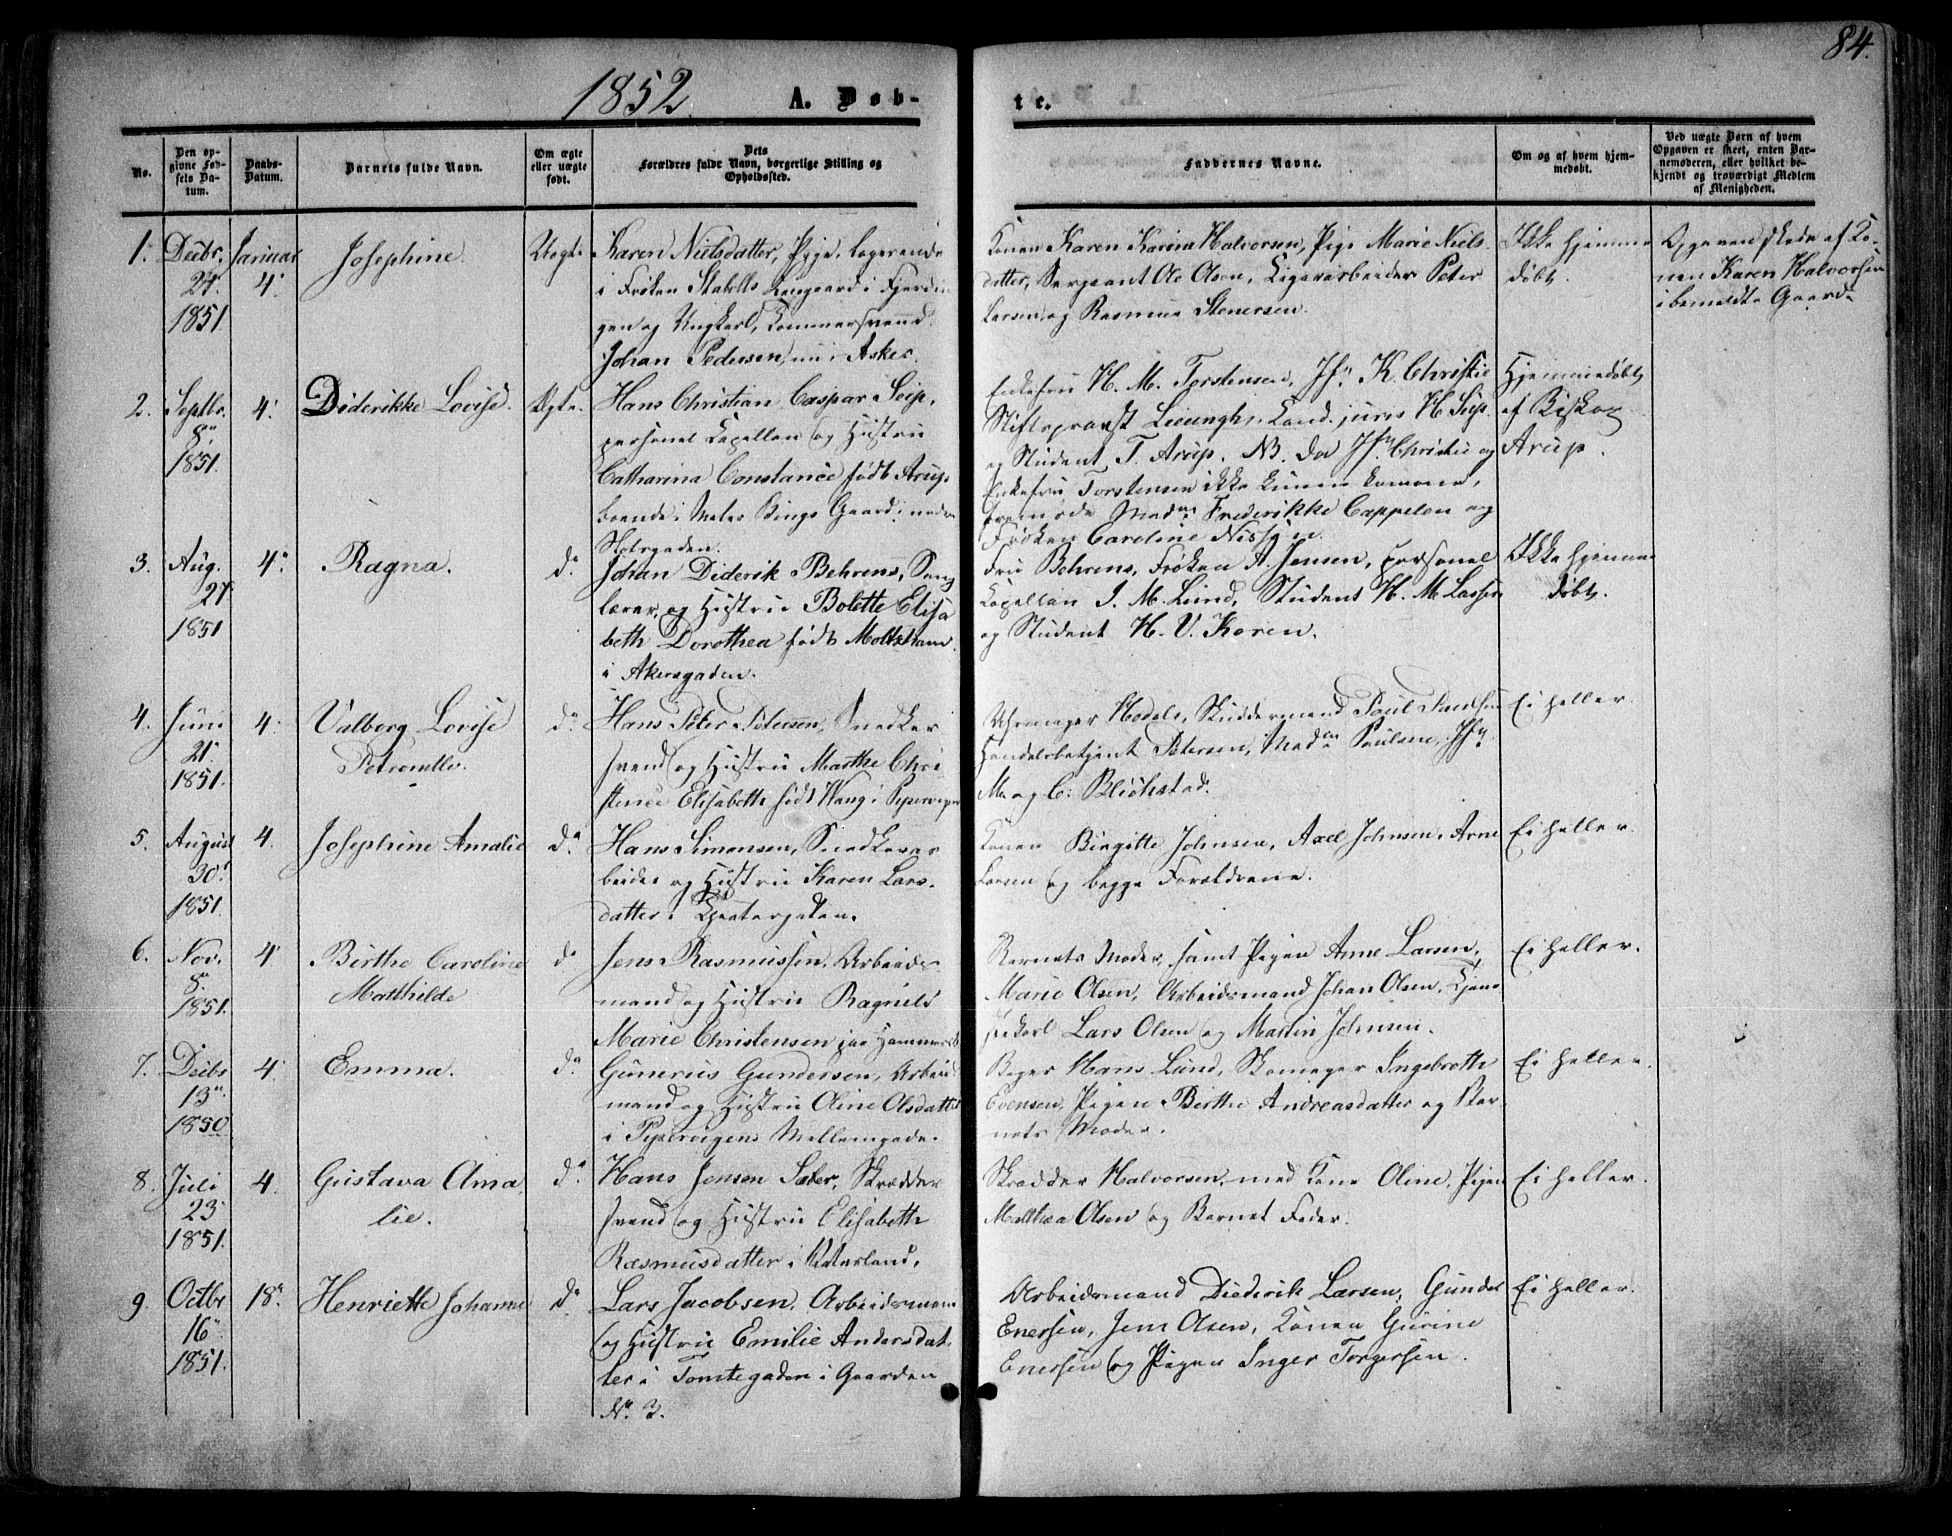 84.
1852. A. Døb-
te.
No.
Den op-
givne Fød-
sels Da-
tum.
Daabs-
Datum.
Barnets fulde Navn.
Om ægte
eller uægte
født.
Dets
Forældres fulde Navn, borgerlige Stilling og
Opholdssted.
Faddernes Navne.
Om og af hvem hjem-
medøbt.
Ved uægte Børn af hvem
Opgaven er skeet, enten Bar-
nemoderen, eller hvilket be-
kjendt og troværdigt Medlem
af Menigheden.
1. Decbr. 24. 1851
Januar 4.
Josephine.
Uægte
Karen Nielsdatter, Pige, logerende
i Frøken Stabells Gaard i Fjerdin
gen og Ungkarl,
Johan Pedersen, nu i Asker.
Konen Karen Karina Halvorsen, Pige Marie Niels-
datter, Sergeant Ole Olsen, Cigararbeider Peter
Larsen og Rasmus Stenersen.
Ikke hjemme
døbt.
Opgaven skede af Ko-
nen Karen Halvorsen
i bemeldte Gaard.
2. Septbr. 8. 1851.
4.
Diderikke Lovise.
Ægte.
Hans Christian Caspar Seip,
personel Capellan og Hustru
Catharina Constance født Arup
boende i Maler Bings Gaard i nedre
Slotsgaden.
Enkefru H. M. Torstensen, Jfr. K. Christie
Stiftsprovst Lieungh, Cand. juris H. Seip
og Student T. Arup. NB. Da Jfr. Christie og
Enkefru Torstensen ikke kunne komme,
Mad. Frederikke Cappelen og
Frøken Caroline Nissen.
Hjemmedøbt
af Biskop
Arup.
3. Aug. 27. 1851
4.
Ragna.
do.
Johan Diderik Behrens, Sang
lærer, og Hustru Bolette Elisa
beth Dorothea født
i Akersgaden.
Fru Behrens, Frøken A. Jensen, personel
Capellan J. M. Lund, Student H. M. Lassen
og Student H. V. Koren.
Ikke hjemme
døbt.
4. Juni 21. 1851.
4.
Valborg Lovise
Petronelle.
do.
Hans Peter Petersen, Snedker
svend og Hustru Marthe Chri
stence Elisabeth født Wang i Pipervigen
Uhrmager Paul
Handelsbetjent Petersen, Mad. Paulsen, Jfr.
M. og C. Blichstad.
Ei heller.
5. August 30. 1851.
4.
Josephine Amalie
do.
Hans Simonsen, Snedkerar
beider og Hustru Karen Lars-
datter i Theatergaden.
Konen Birgitte Johnsen, Axel Johnsen, Arne
Larsen og begge Forældrene.
Ei heller.
6. Nov. 8. 1851.
4.
Birthe Caroline
Matthilde
do
Jens Rasmussen, Arbeids-
mand og Hustru Ragnild
Marie Christensen paa
Barnets Moder, samt Pigen Anne Larsen,
Marie Olsen, Arbeidsmand Johan Olsen, Tjene
stekarl Lars Olsen og Martin Johnsen.
Ei heller.
7. Decbr 13. 1850
4.
Emma.
do.
Gunerius Gundersen, Arbeids
mand og Hustru Oline Olsdatter
i Pipervigens Mellemgade.
Bager Hans Lund, Skomager Ingebreth
Evensen, Pigen Birthe Andreasdatter og Bar-
nets Moder.
Ei heller.
8. Juli 23. 1851.
4.
Gustava Ama
lie.
do.
Hans Jensen Sæter, Skrædder
svend og Hustru Elisabeth
Rasmusdatter i Vaterland.
Skrædder Halvorsen, med Kone Oline, Pigen
Matthea Olsen og Barnets Fader.
Ei heller.
9. Octbr 16. 1851.
18.
Henriette Johanne
do.
Lars Jacobsen, Arbeidsmand
og Hustru Emilie Andersdat
ter i Tomtegaden i Gaarden
No. 3.
Arbeidsmand Diederik Larsen, Gunder
Enersen, Jens Olsen, Konen Gurine
Enersen og Pigen Inger Torgersen.
Ei heller.